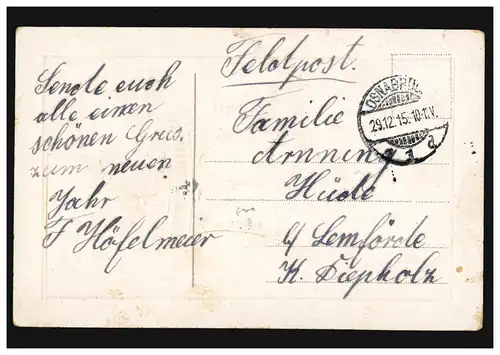 Feldpost.
Sende euch
alle einen
schönen Grus
zum neuen
Jahr
F Höfelmeier
OSNABRÜCK
29.12.15. 10-11.V.
Familie
Arnning
Hüde
b/ Lemförde
K. Diepholz